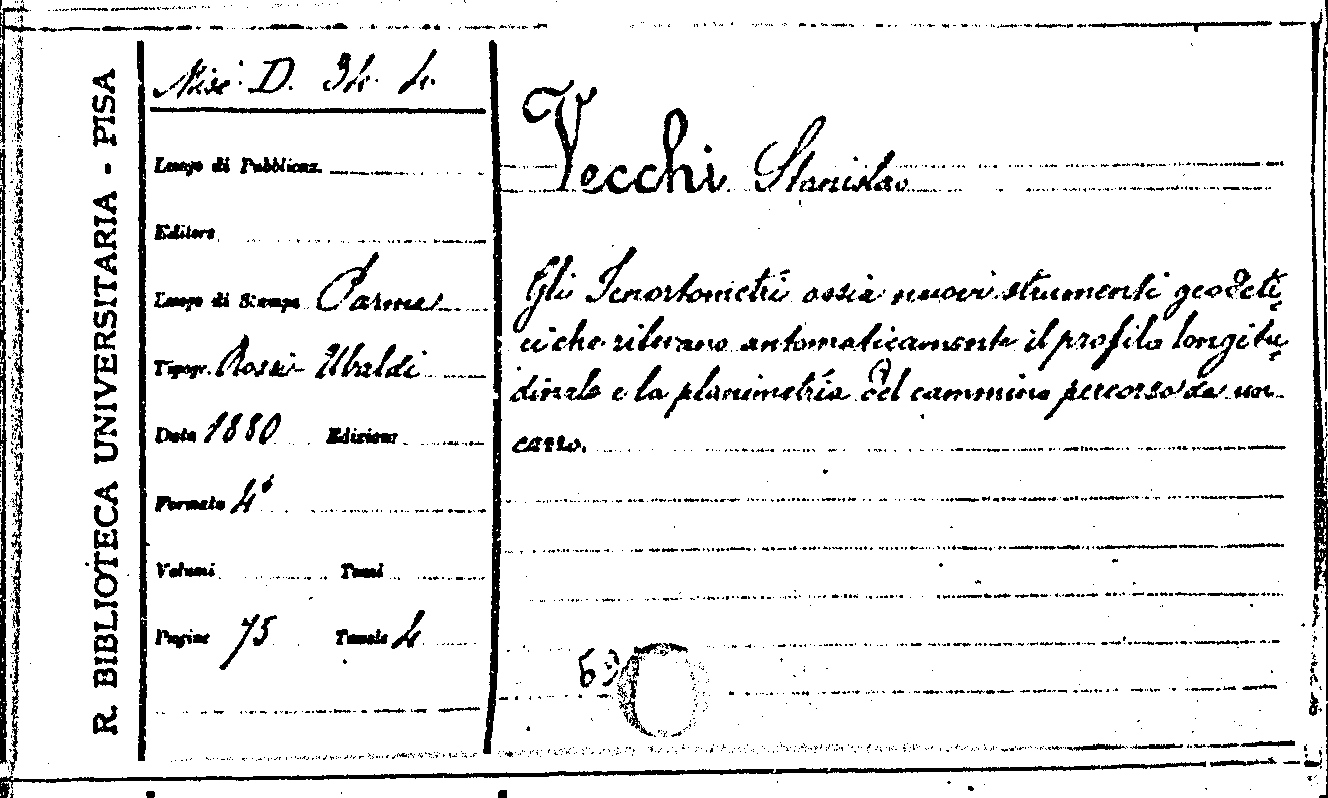 R. BIBLIOTECA UNIVERSITARIA - PISA
Misc. D. 34. 4.
Luogo di Pubblicaz.
Editore
Luogo di Stampa Parma
Tipogr. Rossi-Ubaldi
Data 1880 Edizione
Formato 4°
Volumi Tomi
Pagine 75 Tavole 4
Vecchi Stanislao
Gli Icnortometri ossia nuovi strumenti geodeti-
ci che rilevano automaticamente il profilo longitu-
dinale e la planimetria del cammino percorso da un
carro.